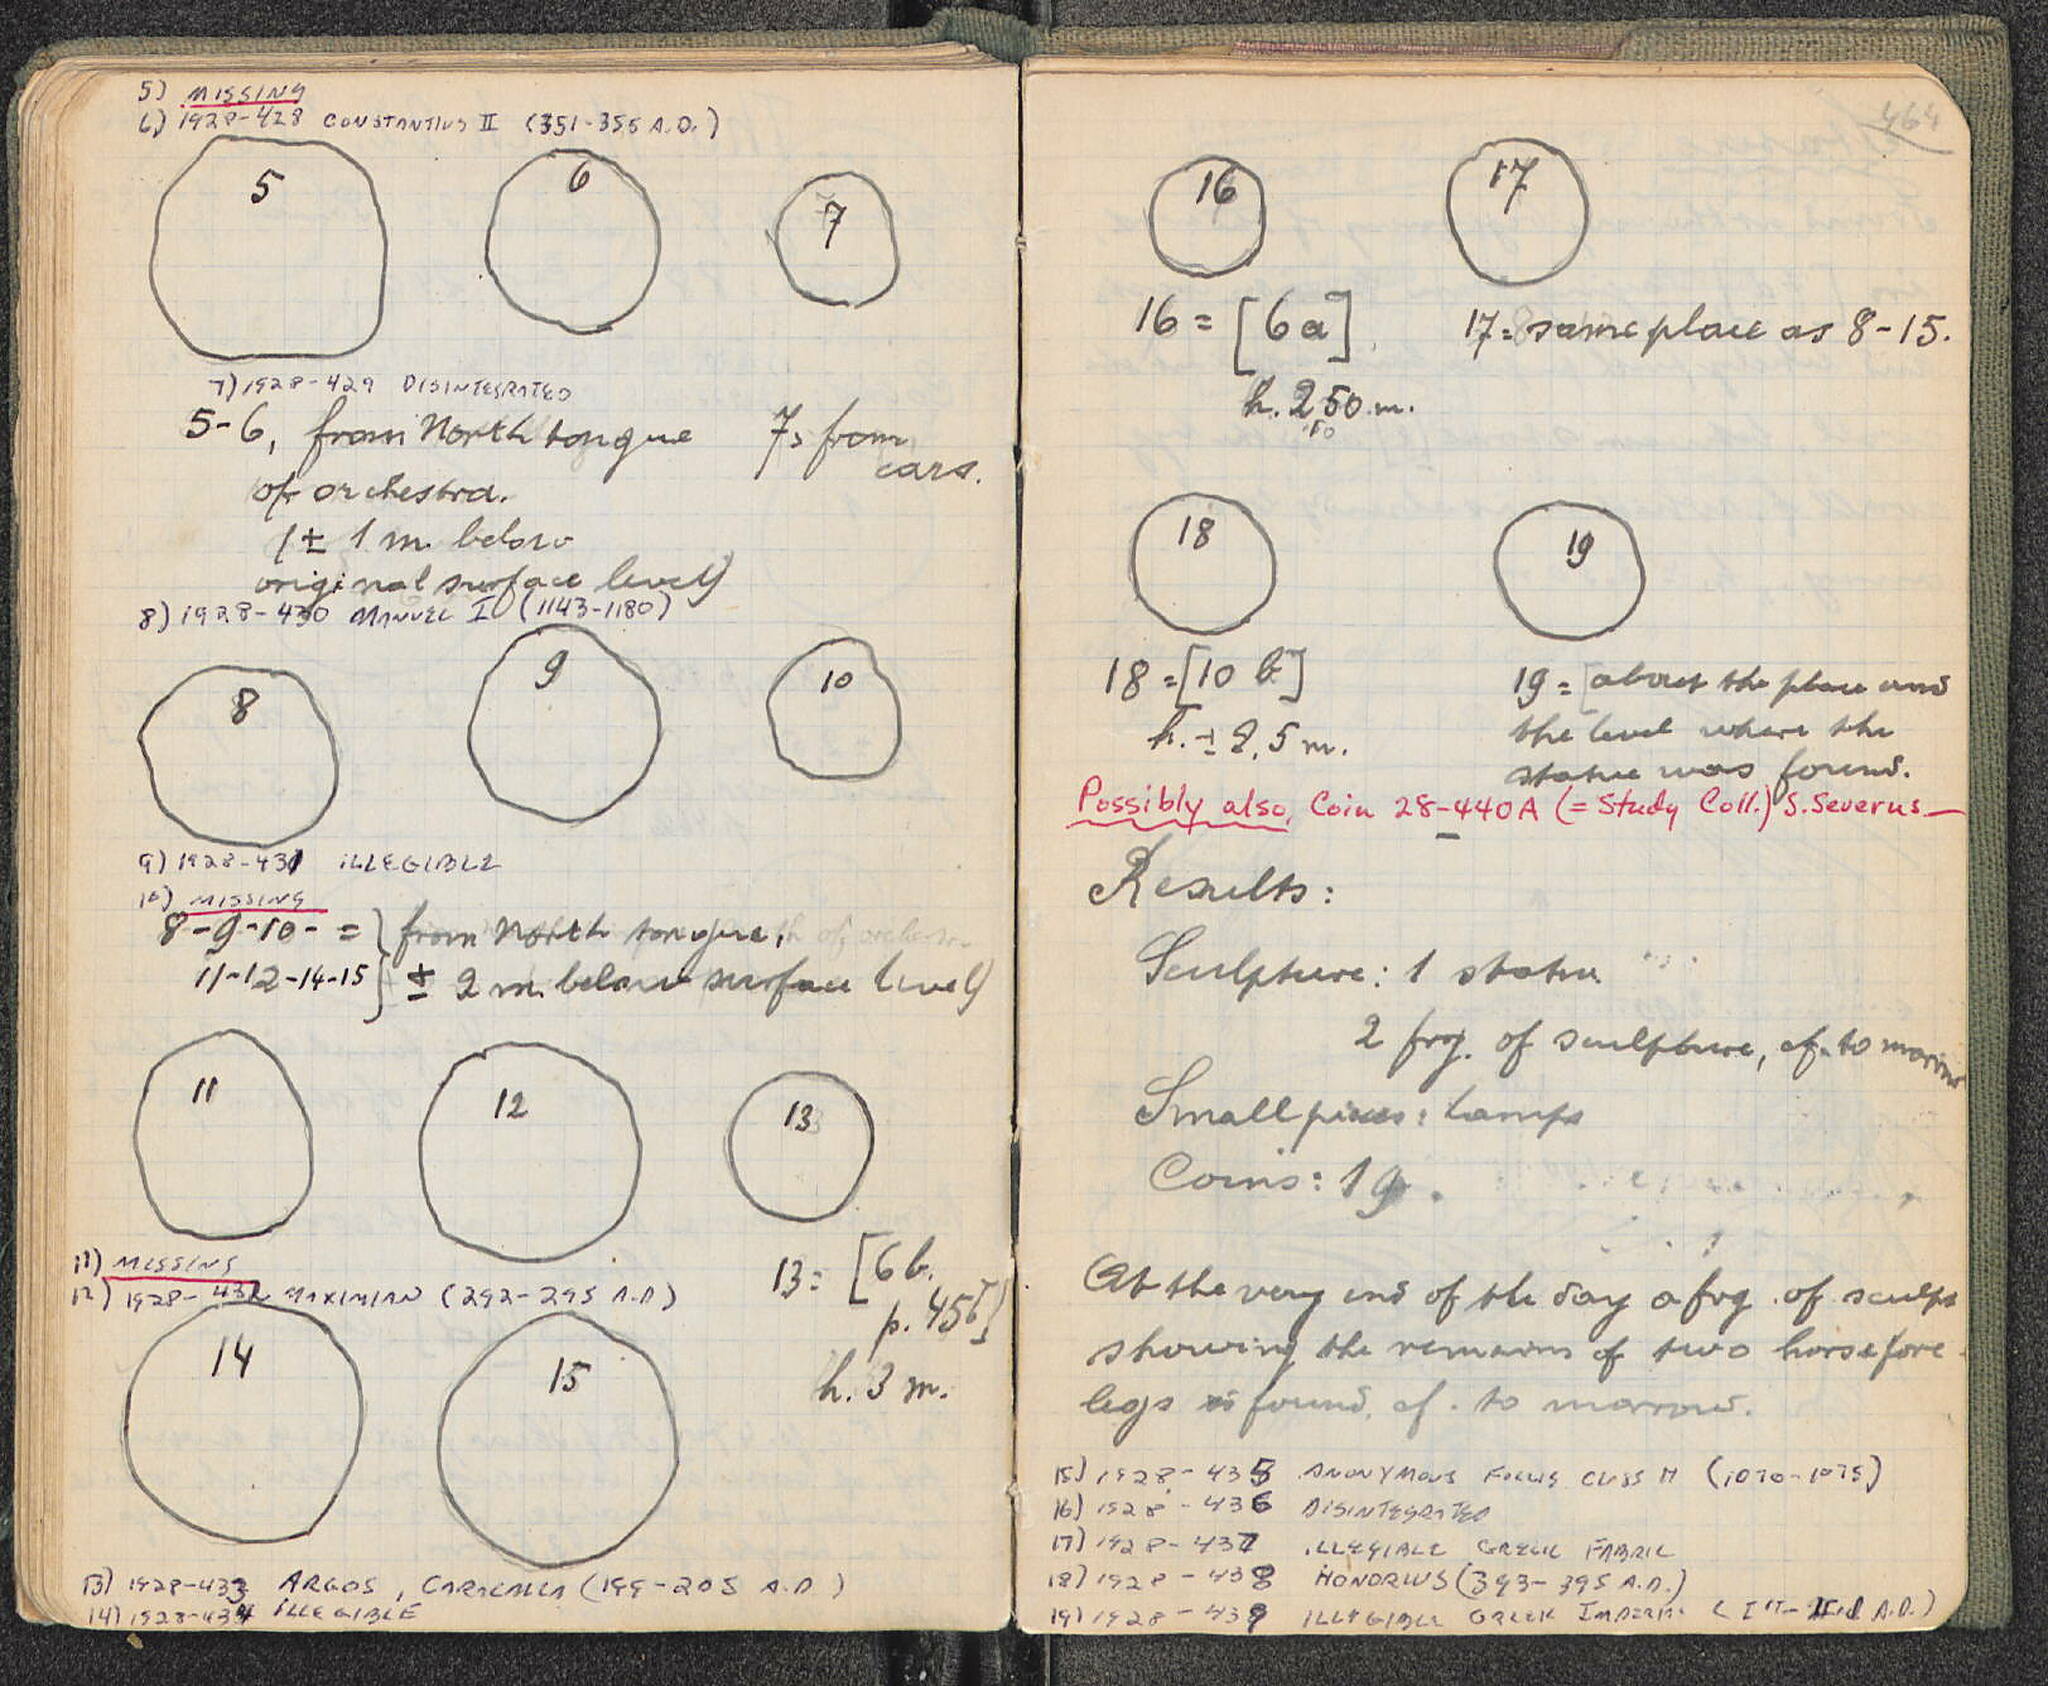 5) MISSING
6) 1928-428 CONSTANTIUS II (351-355 A.D.)
5
6
7
7) 1928-429 DISINTEGRATED
5-6, from North tongue
of orchestra.
(± 1 m. below
original surface level)
7, from
cars.
8) 1928-430 MANUEL I (1143-1180)
8
9
10
9) 1928-431 ILLEGIBLE
10) MISSING
8-9-10- =
11-12-14-15
from North tongue,
± 2 m. below surface level)
11
12
13
11) MISSING
12) 1928-432 MAXIMIAN (292-295 A.D)
13 = [6 b.
p. 456]
h. 3 m.
14
15
13) 1928-433 ARGOS, CARACALLA (199-205 A.D)
14) 1928-434 ILLEGIBLE
464
16
17
16 = [6 a]
h. 2,50 m.
17 = same place as 8-15.
18
19
18 = [10 b]
h. ± 2,5 m.
19 = [about the place and
the level where the
statue was found.
Possibly also, Coin 28-440A (= Study Coll.) S. Severus—
Results:
Sculpture: 1 statue.
2 frg. of sculpture, cf. to morrow
Small pieces: lamps
Coins: 19.
At the very end of the day a frg. of sculpt
showing the remains of two horse fore
legs is found, cf. to morrow.
15) 1928-435 ANONYMOUS FOLLIS CLASS H (1070-1075)
16) 1928-436 DISINTEGRATED
17) 1928-437 ILLEGIBLE GREEK FABRIC
18) 1928-438 HONORIUS (393-395 A.D.)
19) 1928-439 ILLEGIBLE GREEK IMPERIAL (Ist- A.D.)